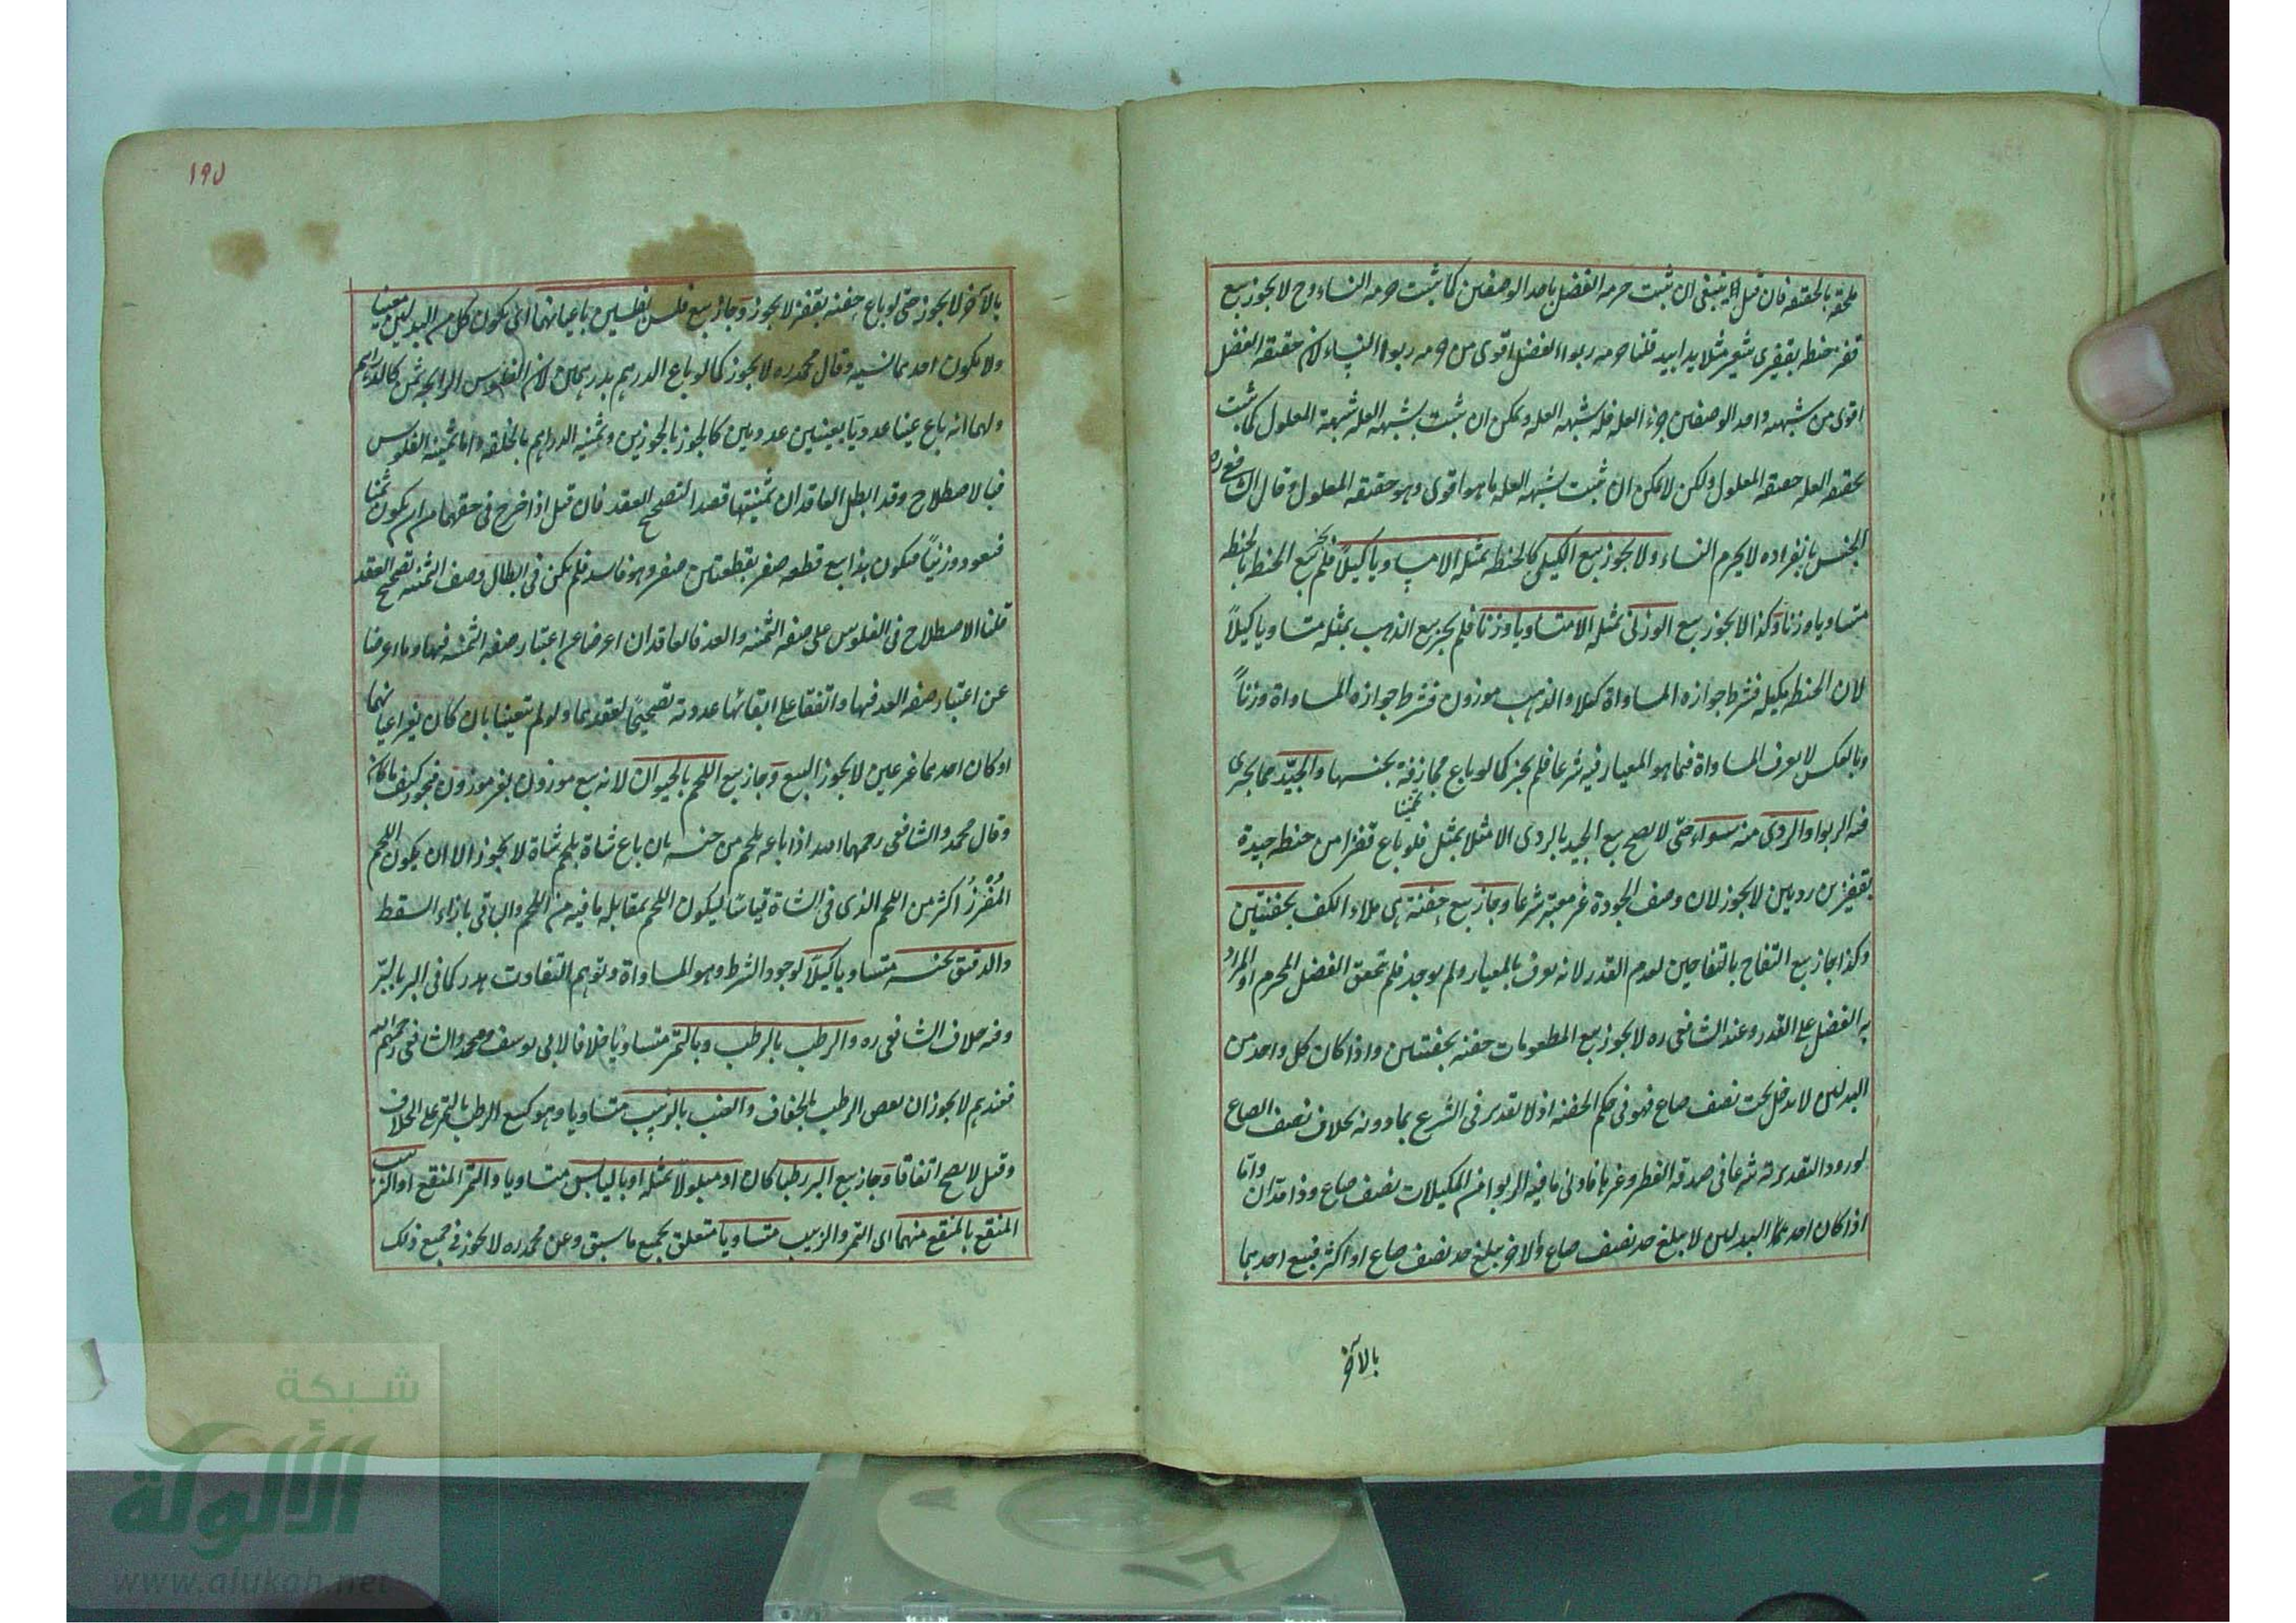 ملحقة بالحقيقة فان قيل ينبغى ان تثبت حرمه الفضل باحد الوصفين كما ثبت حرمه النساء وح لا يجوز بيع
قفيز حنطه بقفيزى شعير مثلا يدا بيد قلنا حرمه ربواء الفضل اقوى من حرمه ربوا النساء لان حقيقه الفضل
اقوى من شبهته واحد الوصفين جزء العله فله شبهه العله ويمكن ان تثبت بشبهه العله شبهة المعلول كما تثبت
بحقيقه العله حقيقه المعلول ولكن لا يمكن ان تثبت بشبهه العله ما هو اقوى وهو حقيقه المعلول وقال الشافعى ره
الجنس بانفراده لا يحرم النساء ولا يجوز بيع الكيلى كالحنطه بمثله الا متساويا كيلاً فلم يجز بيع الحنطه بالحنطه
متساويا وزنا وكذا لا يجوز بيع الوزنى بمثله الا متساويا وزنا فلم يجز بيع الذهب بمثله متساويا كيلاً
لان الحنطه مكيله فشرط جوازه المساواة كيلا والذهب موزون فشرط جوازه المساواة وزناً
وبالعكس لا يعرف المساواة فيما هو المعيار فيه شرعا فلم يجز كما لو باع مجازفة بجنسها والجيد مما يجرى
فيه الربوا والردى منه سواء حتى لا يصح بيع الجيد بالردى الا مثلا بمثل فلو باع قفيزا من حنطه جيدة
بقفيزين رديين لا يجوز لان وصف الجودة غير معتبر شرعا وجاز بيع حفنة هى ملاء الكف بحفنتين
وكذا جاز بيع التفاح بالتفاحين لعدم القدر لانه يعرف بالمعيار ولم يوجد فلم تحقق الفضل المحرم اذ المراد
به الفضل على القدر وعند الشافعى ره لا يجوز بيع المطعومات حفنه بحفنتين واذا كان كل واحد من
البدلين لا يدخل تحت نصف صاع فهو فى حكم الحفنه اذ لا تقدير فى الشرع بما دونه بخلاف نصف الصاع
لورود التقدير به شرعا فى صدقه الفطر وغيرها فادنى ما فيه الربوا من المكيلات نصف صاع وذا مدان واما
اذا كان احد البدلين لا يبلغ حد نصف صاع والاخر يبلغ حد نصف صاع او اكثر فبيع احدهما
بالآخر
١٩٥
بالآخر لا يجوز حتى لو باع حفنه بقفيز لا يجوز وجاز بيع فلس بفلسين باعيانهما اى يكون كل من البدلين معينا
ولا يكون احدهما نسيه وقال محمد ره لا يجوز كما لو باع الدرهم بدرهمين لان الفلوس الرايجه ثمن كالدراهم
ولهما انه باع عينا عدديا بعينين عدديين كالجوز بالجوزين وثمنيه الدراهم بالخلقه واما ثمنيه الفلوس
فبالاصطلاح وقد ابطل العاقدان ثمنيتها قصدا لتصحيح العقد فان قيل اذا خرج فى حقهما من ان يكون ثمنا
فيعود وزنياً فيكون هذا بيع قطعه صفر بقطعتين صفر وهو فاسد فلم يكن فى ابطال وصف الثمنيه تصحيح العقد
قلنا الاصطلاح فى الفلوس على صفه الثمنيه والعد فالعاقدان اعرضا عن اعتبار صفه الثمنيه فيها وما اعرضا
عن اعتبار صفه العد فيها واتفقا على ابقائها عدديه تصحيحا لعقدهما ولو لم تعينا بان كان بغير اعيانهما
او كان احدهما غير عين لا يجوز البيع وجاز بيع اللحم بالحيوان لانه بيع موزون بغير موزون فيجوز كيف ما كان
وقال محمد والشافعى رحمهما الله اذا باعه بلحم من جنسه بان باع شاة بلحم شاة لا يجوز الا ان يكون اللحم
المُفْرَزُ اكثر من اللحم الذى فى الشاة قياسًا ليكون اللحم بمقابله ما فيه من اللحم والباقى بازاء السقط
والدقيق بجنسه متساويا كيلاً لوجود الشرط وهو المساواة وتوهم التفاوت هدر كما فى البر بالبر
وفيه خلاف الشافعى ره والرطب بالرطب وبالتمر متساويا خلافا لابى يوسف ومحمد والشافعى رحمهم الله
فعندهم لا يجوز ان نقص الرطب بالجفاف والعنب بالزبيب متساويا وهو كبيع الرطب بالتمر على الخلاف
وقيل لا يصح اتفاقا وجاز بيع البر رطبا كان او مبلولاً بمثله او باليابس متساويا والتمر المنقع او الزبيب
المنقع بالمنقع منهما اى التمر والزبيب متساويا متعلق بجميع ما سبق وعن محمد ره لا يجوز فى جميع ذلك
شبكة
الألوكة
www.alukah.net